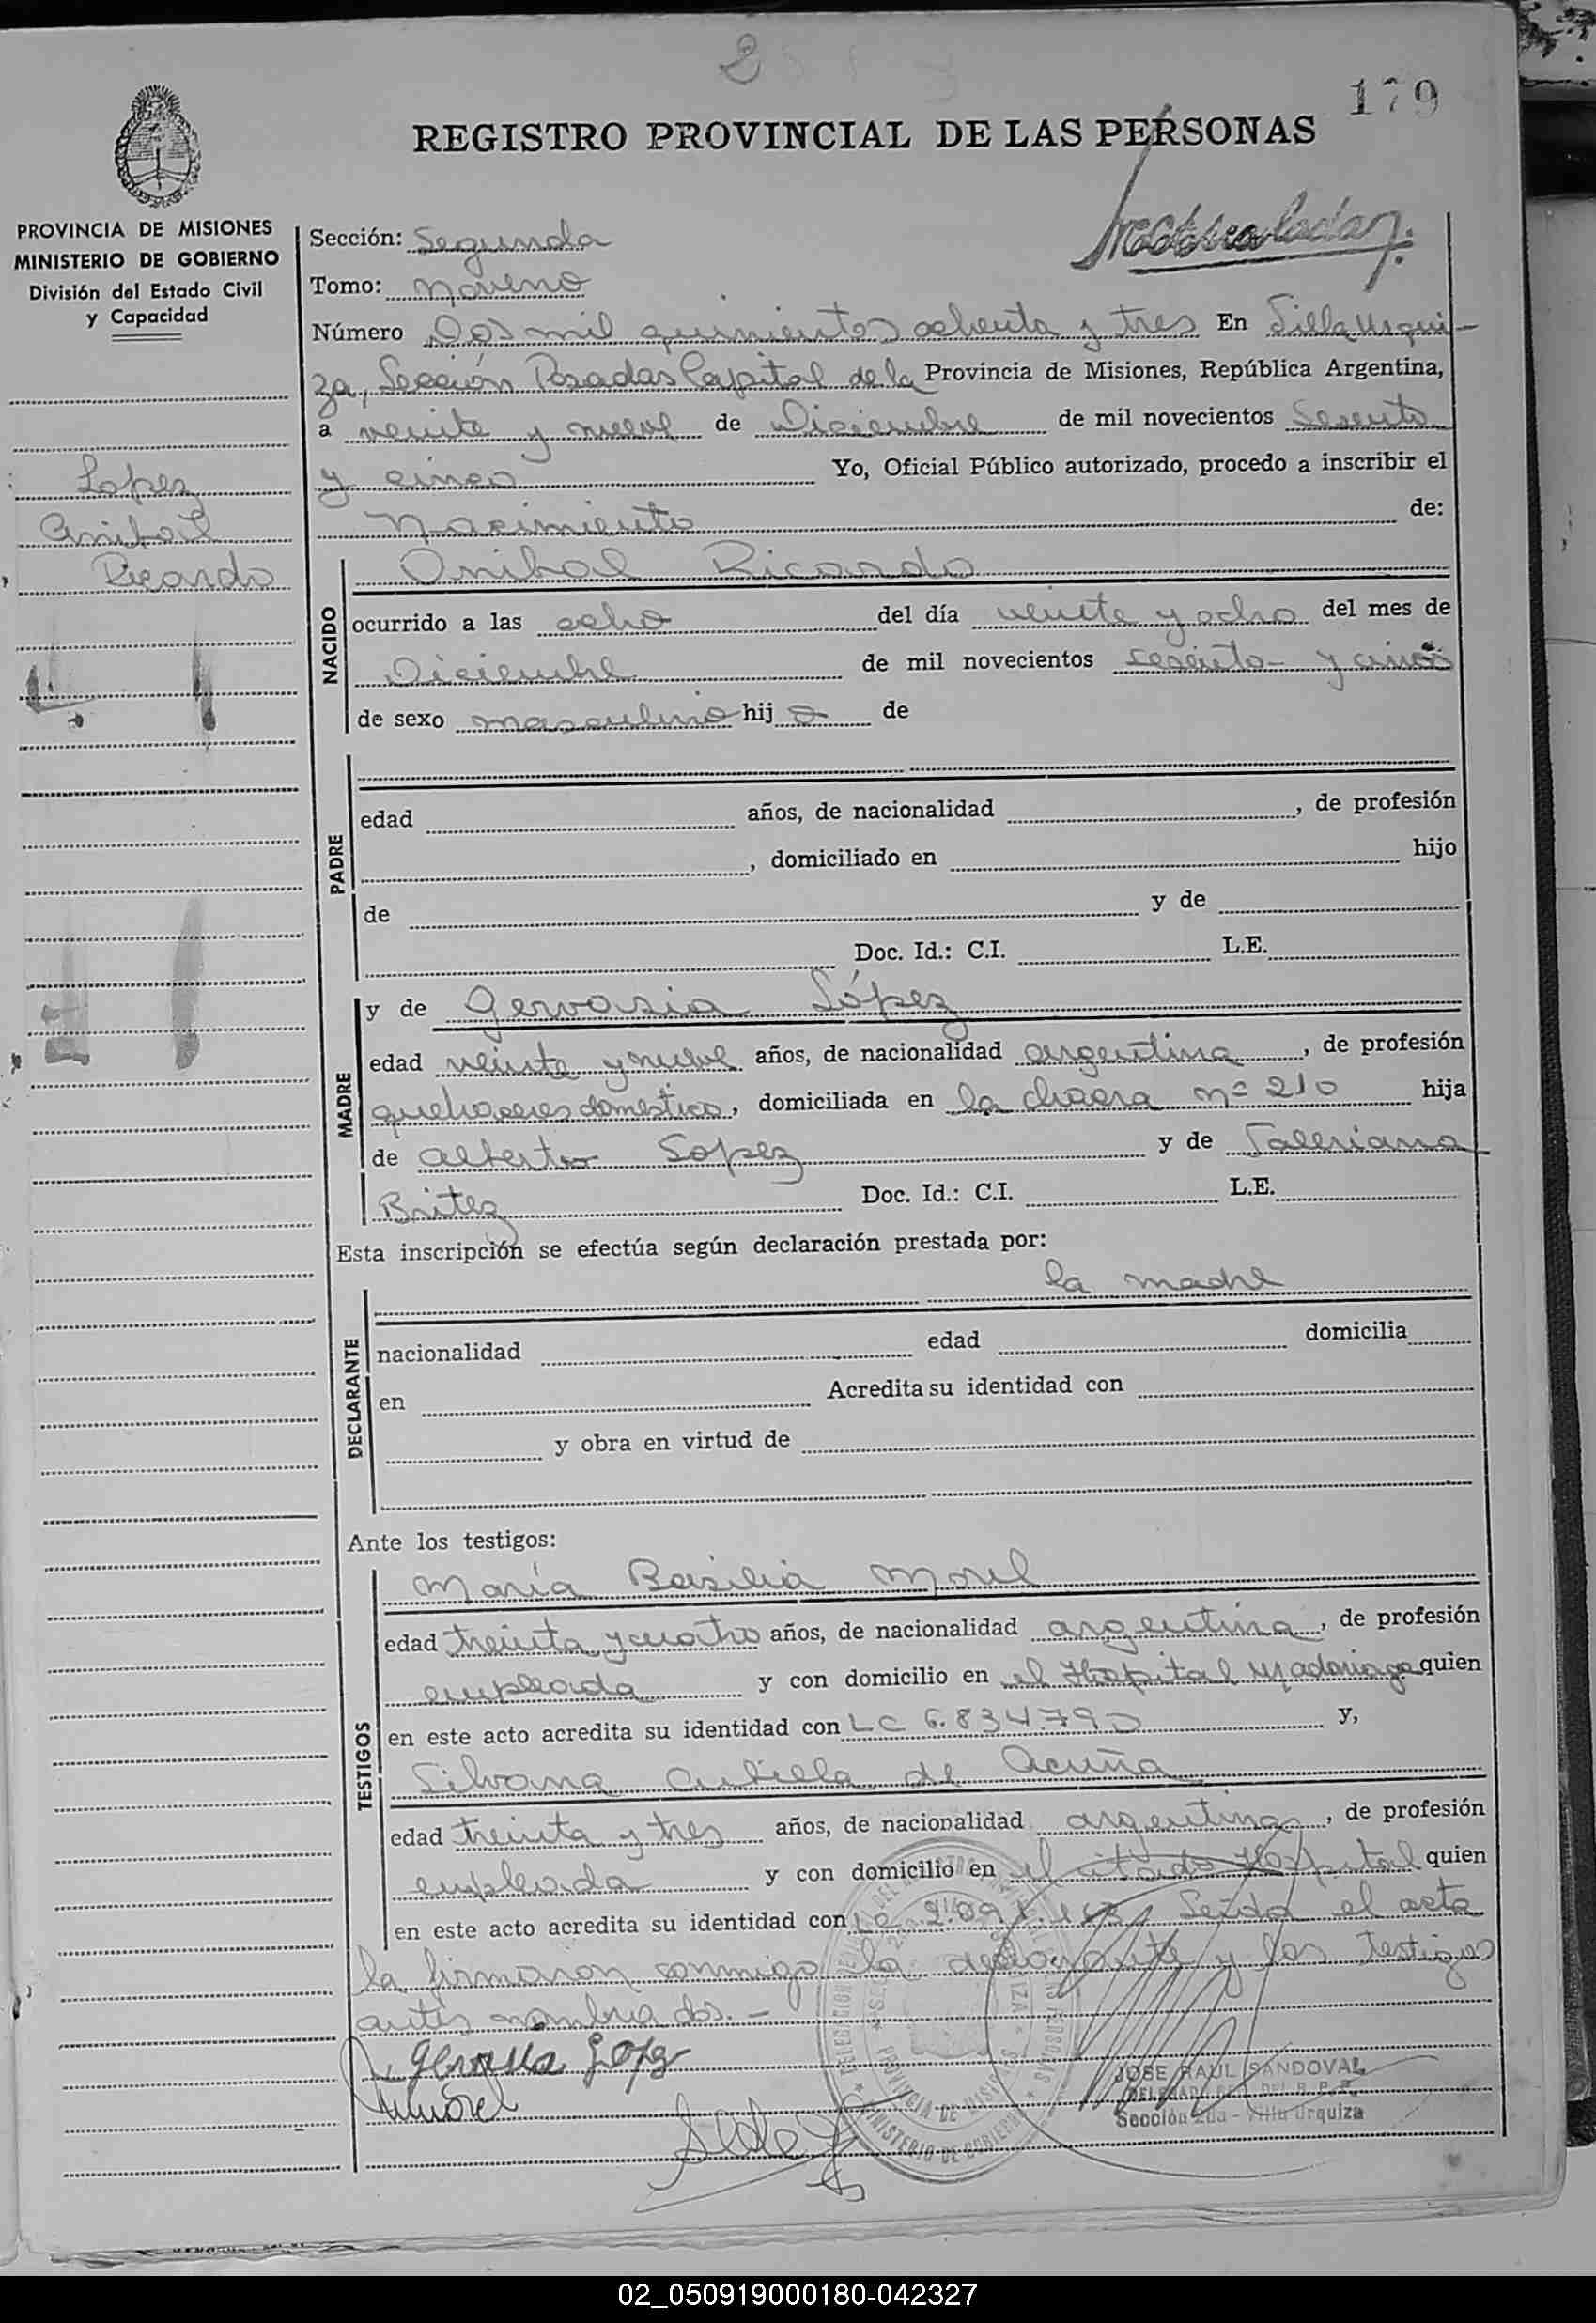 2
179
REGISTRO PROVINCIAL DE LAS PERSONAS
PROVINCIA DE MISIONES
MINISTERIO DE GOBIERNO
División del Estado Civil
y Capacidad
Lopez
Anibal
Ricardo
Sección: Segunda
Tomo: Noveno
Número Dos mil quinientos ochenta y tres En Villa Urqui-
za, Sección Posadas Capital de la Provincia de Misiones, República Argentina,
a veinte y nueve de Diciembre de mil novecientos sesenta
y cinco Yo, Oficial Público autorizado, procedo a inscribir el
Nacimiento de:
NACIDO
Anibal Ricardo
ocurrido a las ocho del día veinte y ocho del mes de
Diciembre de mil novecientos sesenta y cinco
de sexo masculino hijo de
PADRE
edad años, de nacionalidad , de profesión
, domiciliado en hijo
de y de
Doc. Id.: C.I. L.E.
MADRE
y de Gervasia López
edad veinte y nueve años, de nacionalidad argentina, de profesión
quehaceres domestico, domiciliada en la chacra nº 210 hija
de Alberto Lopez y de Valeriana
Britez Doc. Id.: C.I. L.E.
Esta inscripción se efectúa según declaración prestada por:
la madre
DECLARANTE
nacionalidad edad domicilia
en Acredita su identidad con
y obra en virtud de
Ante los testigos:
TESTIGOS
María Basilia Morel
edad treinta y cuatro años, de nacionalidad argentina, de profesión
empleada y con domicilio en el Hospital Madariaga quien
en este acto acredita su identidad con LC 6.834.790 y,
Silvana de Acuña
edad treinta y tres años, de nacionalidad argentina, de profesión
empleada y con domicilio en el citado Hospital quien
en este acto acredita su identidad con Leída el acta
la firmaron conmigo la declarante y los testigos
antes nombrados.-
Gervasia Lopez
Morel
JOSE RAUL SANDOVAL
Sección 2da - Villa Urquiza
PROVINCIA DE MISIONES
MINISTERIO DE GOBIERNO
02_050919000180-042327